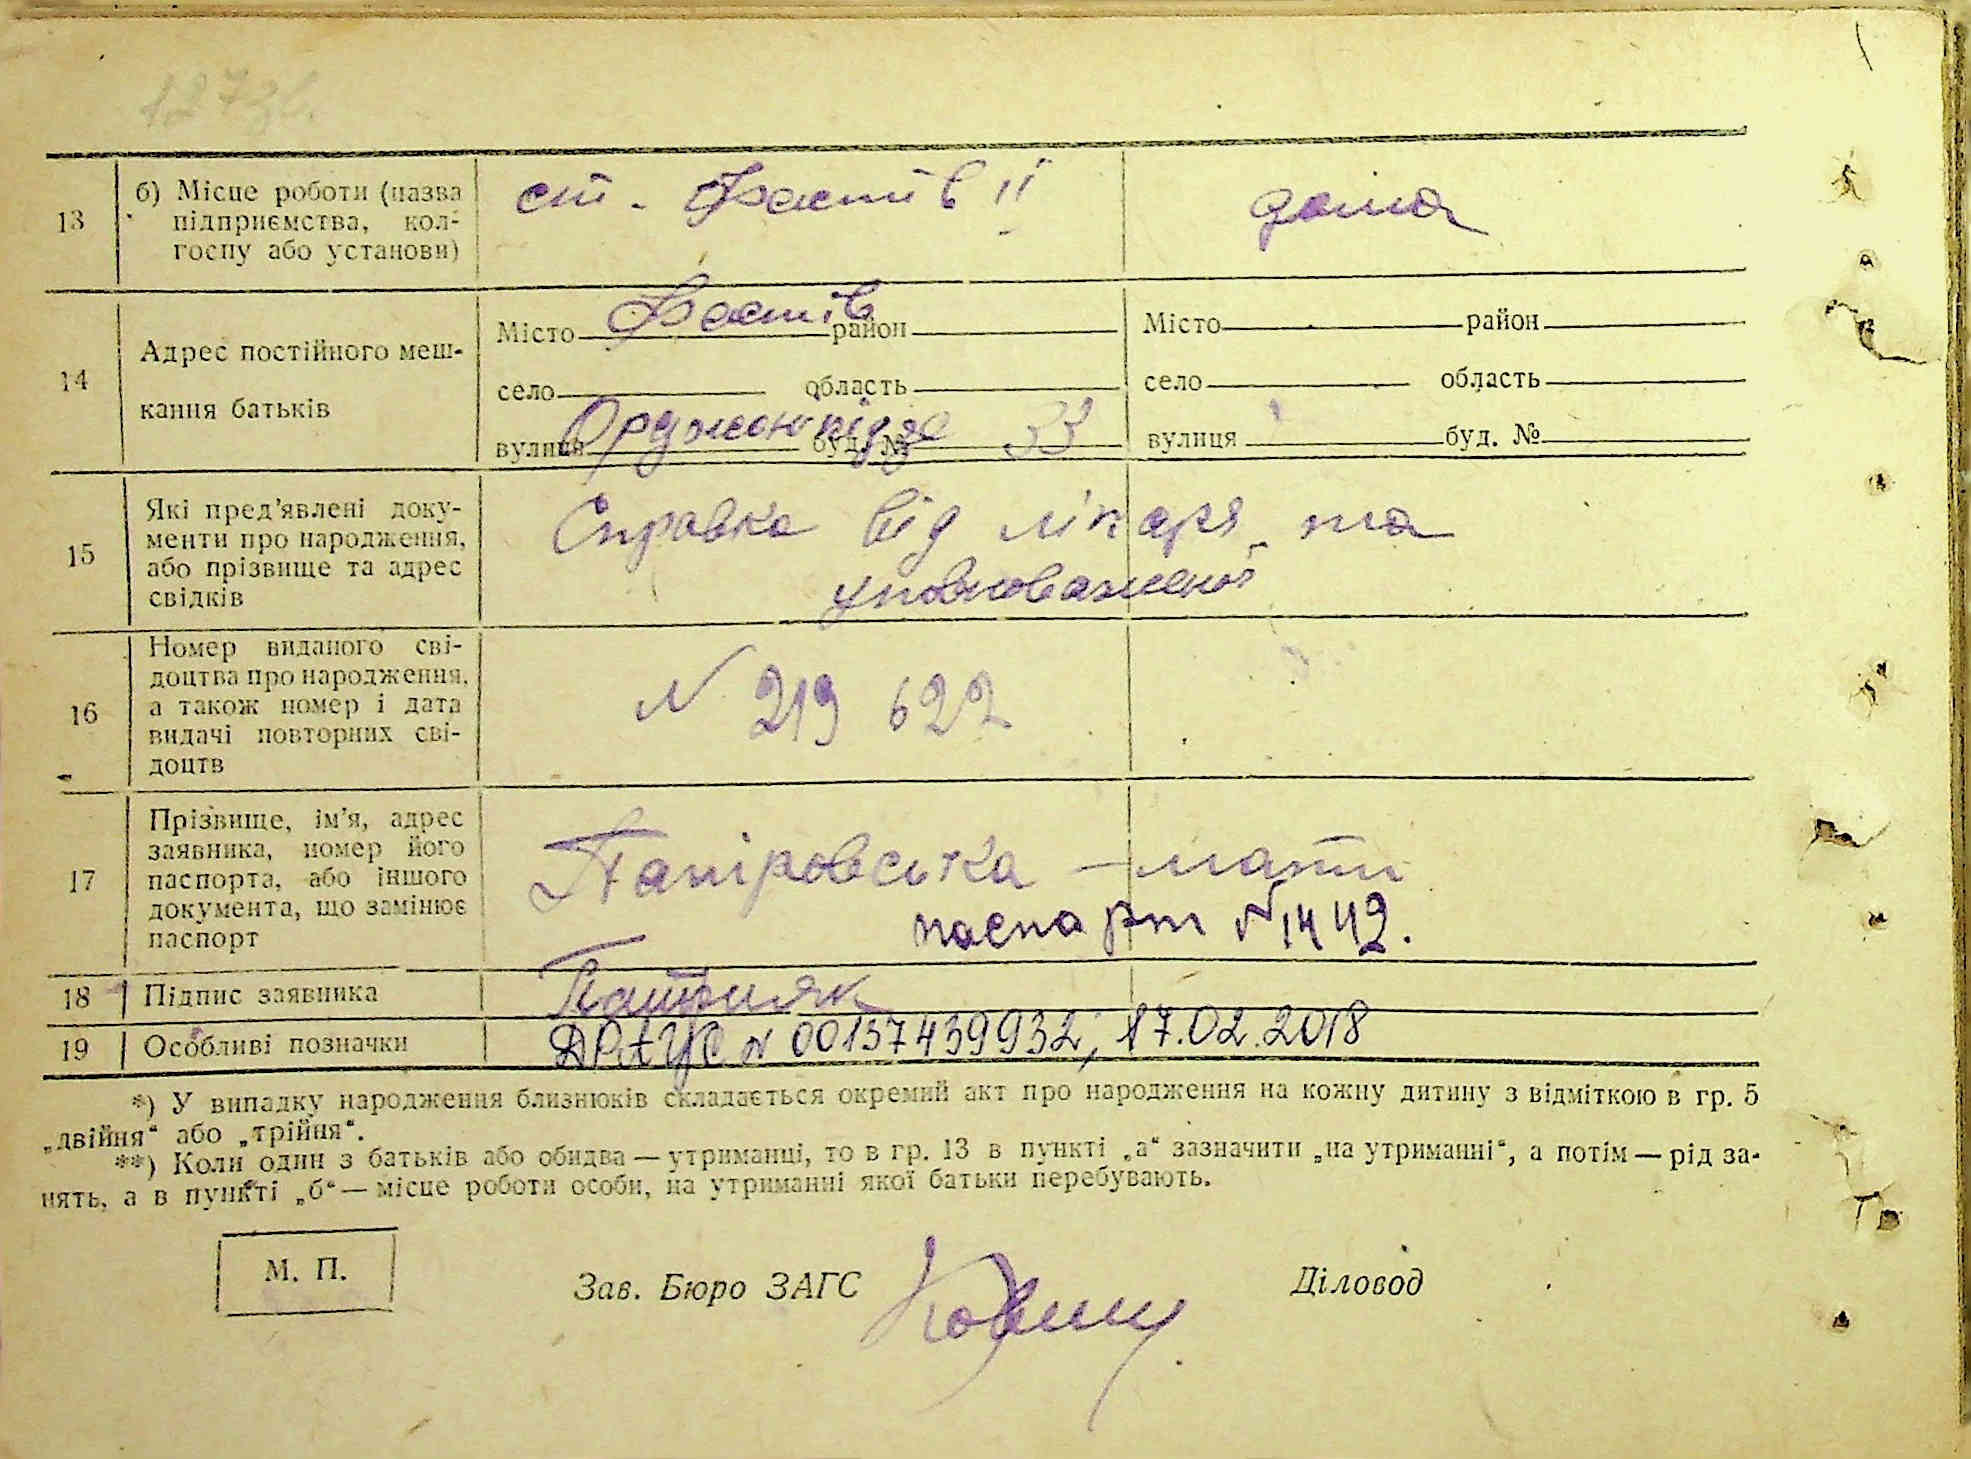 127зв.
13
б) Місце роботи (назва
підприємства, кол-
госпу або установи)
ст. Фастів II
дома
14
Адрес постійного меш-
кання батьків
Місто Фастів район
село область
вулиця Орджонікідзе буд. № 33
Місто район
село область
вулиця буд. №
15
Які пред'явлені доку-
менти про народження,
або прізвище та адрес
свідків
Справка від лікаря та
уповноваженої
16
Номер виданого сві-
доцтва про народження,
а також номер і дата
видачі повторних сві-
доцтв
N 219 622
17
Прізвище, ім'я, адрес
заявника, номер його
паспорта, або іншого
документа, що замінює
паспорт
Папіровська — мати
паспорт N 1442.
18
Підпис заявника
19
Особливі позначки
ДРАЦС N 00137439932, 17.02.2018
*) У випадку народження близнюків складається окремий акт про народження на кожну дитину з відміткою в гр. 5
„двійня“ або „трійня“.
**) Коли один з батьків або обидва — утриманці, то в гр. 13 в пункті „а“ зазначити „на утриманні“, а потім — рід за-
нять, а в пункті „б“ — місце роботи особи, на утриманні якої батьки перебувають.
М. П.
Зав. Бюро ЗАГС
Діловод